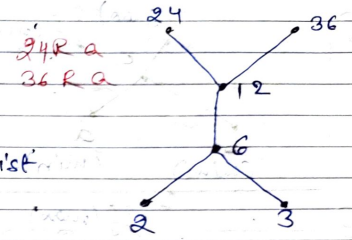 24 36
24 R a
36 R a
12
6
ist
2 3